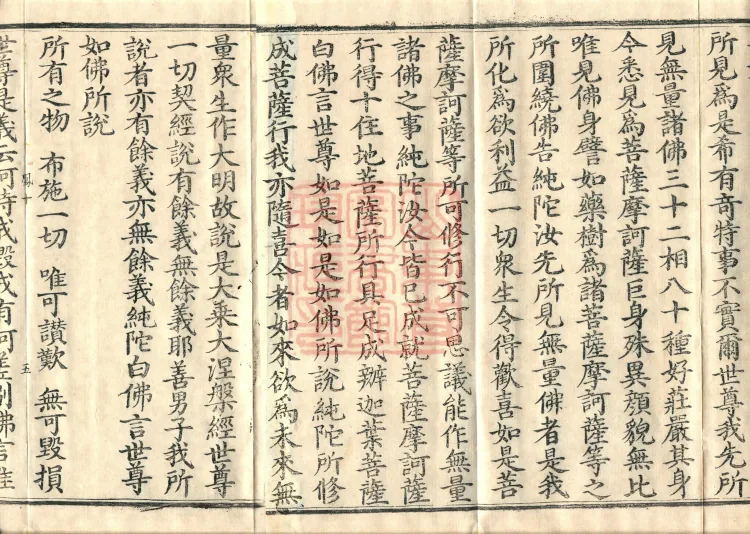 所見為是希有奇特事不實爾世尊我先所
見無量諸佛三十二相八十種好莊嚴其身
今悉見為菩薩摩訶薩巨身殊異顏貌無比
唯見佛身譬如藥樹為諸菩薩摩訶薩等之
所圍繞佛告純陀汝先所見無量佛者是我
所化為欲利益一切衆生令得歡喜如是菩
薩摩訶薩等所可修行不可思議能作無量
諸佛之事純陀汝今皆已成就菩薩摩訶薩
行得十住地菩薩所行具足成辦迦葉菩薩
白佛言世尊如是如是如佛所說純陀所修
成菩薩行我亦隨喜今者如來欲為未來無
量衆生作大明故說是大乘大涅槃經世尊
一切契經說有餘義無餘義耶善男子我所
說者亦有餘義亦無餘義純陀白佛言世尊
如佛所說
所有之物 布施一切 唯可讚歎 無可毀損
鳳十 五
世尊是義云何持戒毀戒有何差別佛言唯